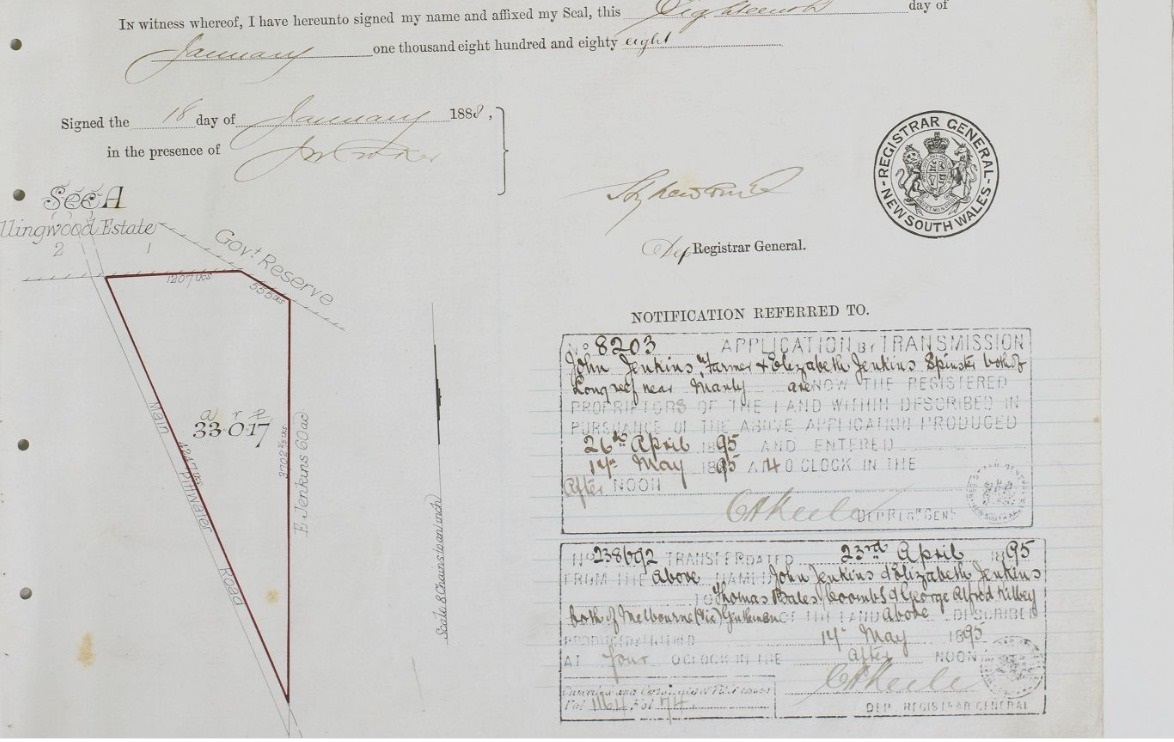 IN witness whereof, I have hereunto signed my name and affixed my Seal, this Eighteenth day of
January one thousand eight hundred and eighty eight
Signed the 18 day of January 1888,
in the presence of
REGISTRAR GENERAL
NEW SOUTH WALES
Dep Registrar General.
Sec A
llingwood Estate
2 1
Govt. Reserve
1207
a r p
33·0·17
Main Pittwater Road
E. Jenkins 60 ac
Scale 8 Chains to an inch
NOTIFICATION REFERRED TO.
No 8203 APPLICATION BY TRANSMISSION
John Jenkins, Farmer & Elizabeth Jenkins Spinster both of
Longreef near Manly are NOW THE REGISTERED
PROPRIETORS OF THE LAND WITHIN DESCRIBED IN
PURSUANCE OF THE ABOVE APPLICATION PRODUCED
26th April 1895 AND ENTERED
14th May 1895 AT 4 O'CLOCK IN THE
After NOON
DEP REG GENL
No 238692 TRANSFER DATED 23rd April 1895
FROM THE above NAMED John Jenkins & Elizabeth Jenkins
TO Thomas Bales Coombs & George Alfred Kilbey
both of Melbourne (Vic) Gentlemen OF THE LAND above DESCRIBED
PRODUCED & ENTERED 14th May 1895
AT four O'CLOCK IN THE after NOON
Vol 1164 Fol 74
DEP. REGISTRAR GENERAL